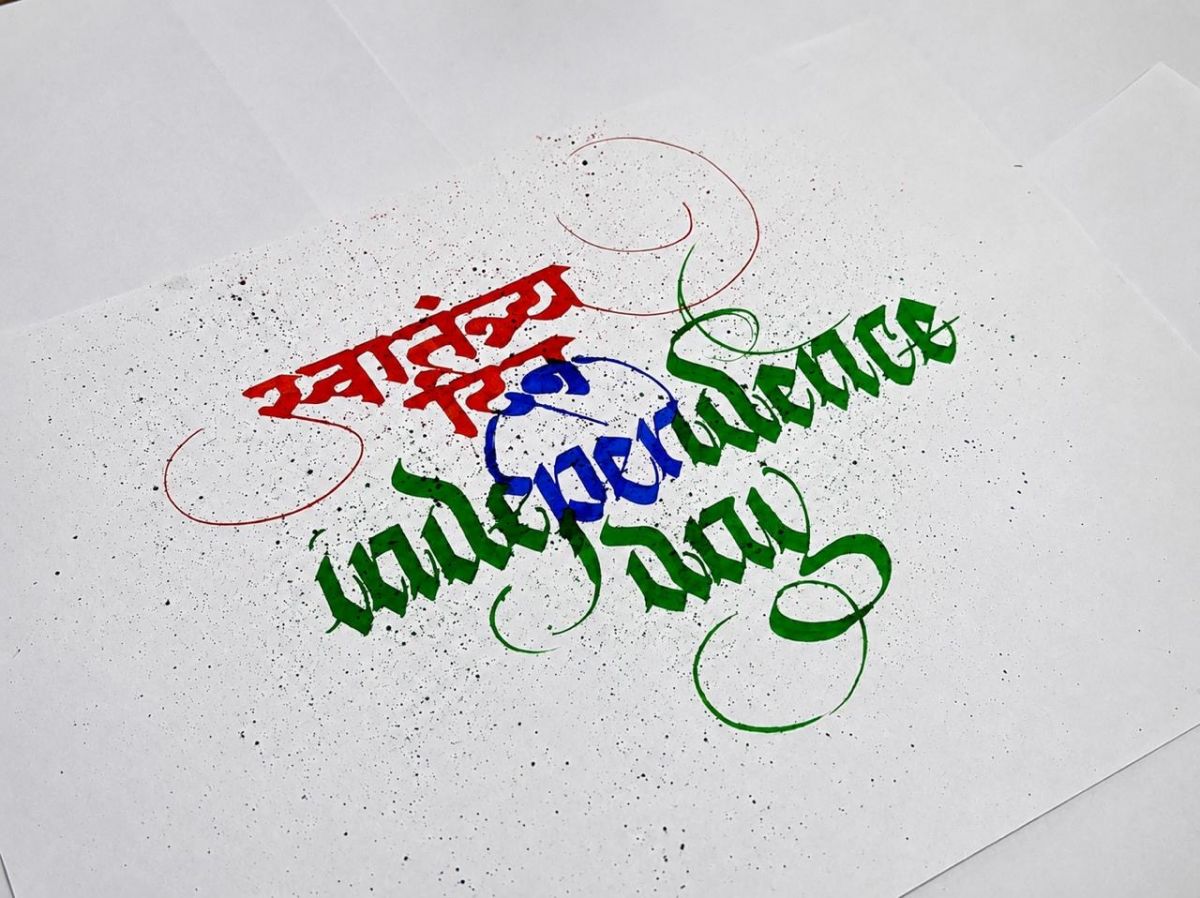 स्वातंत्र्य
दिन
independence
day